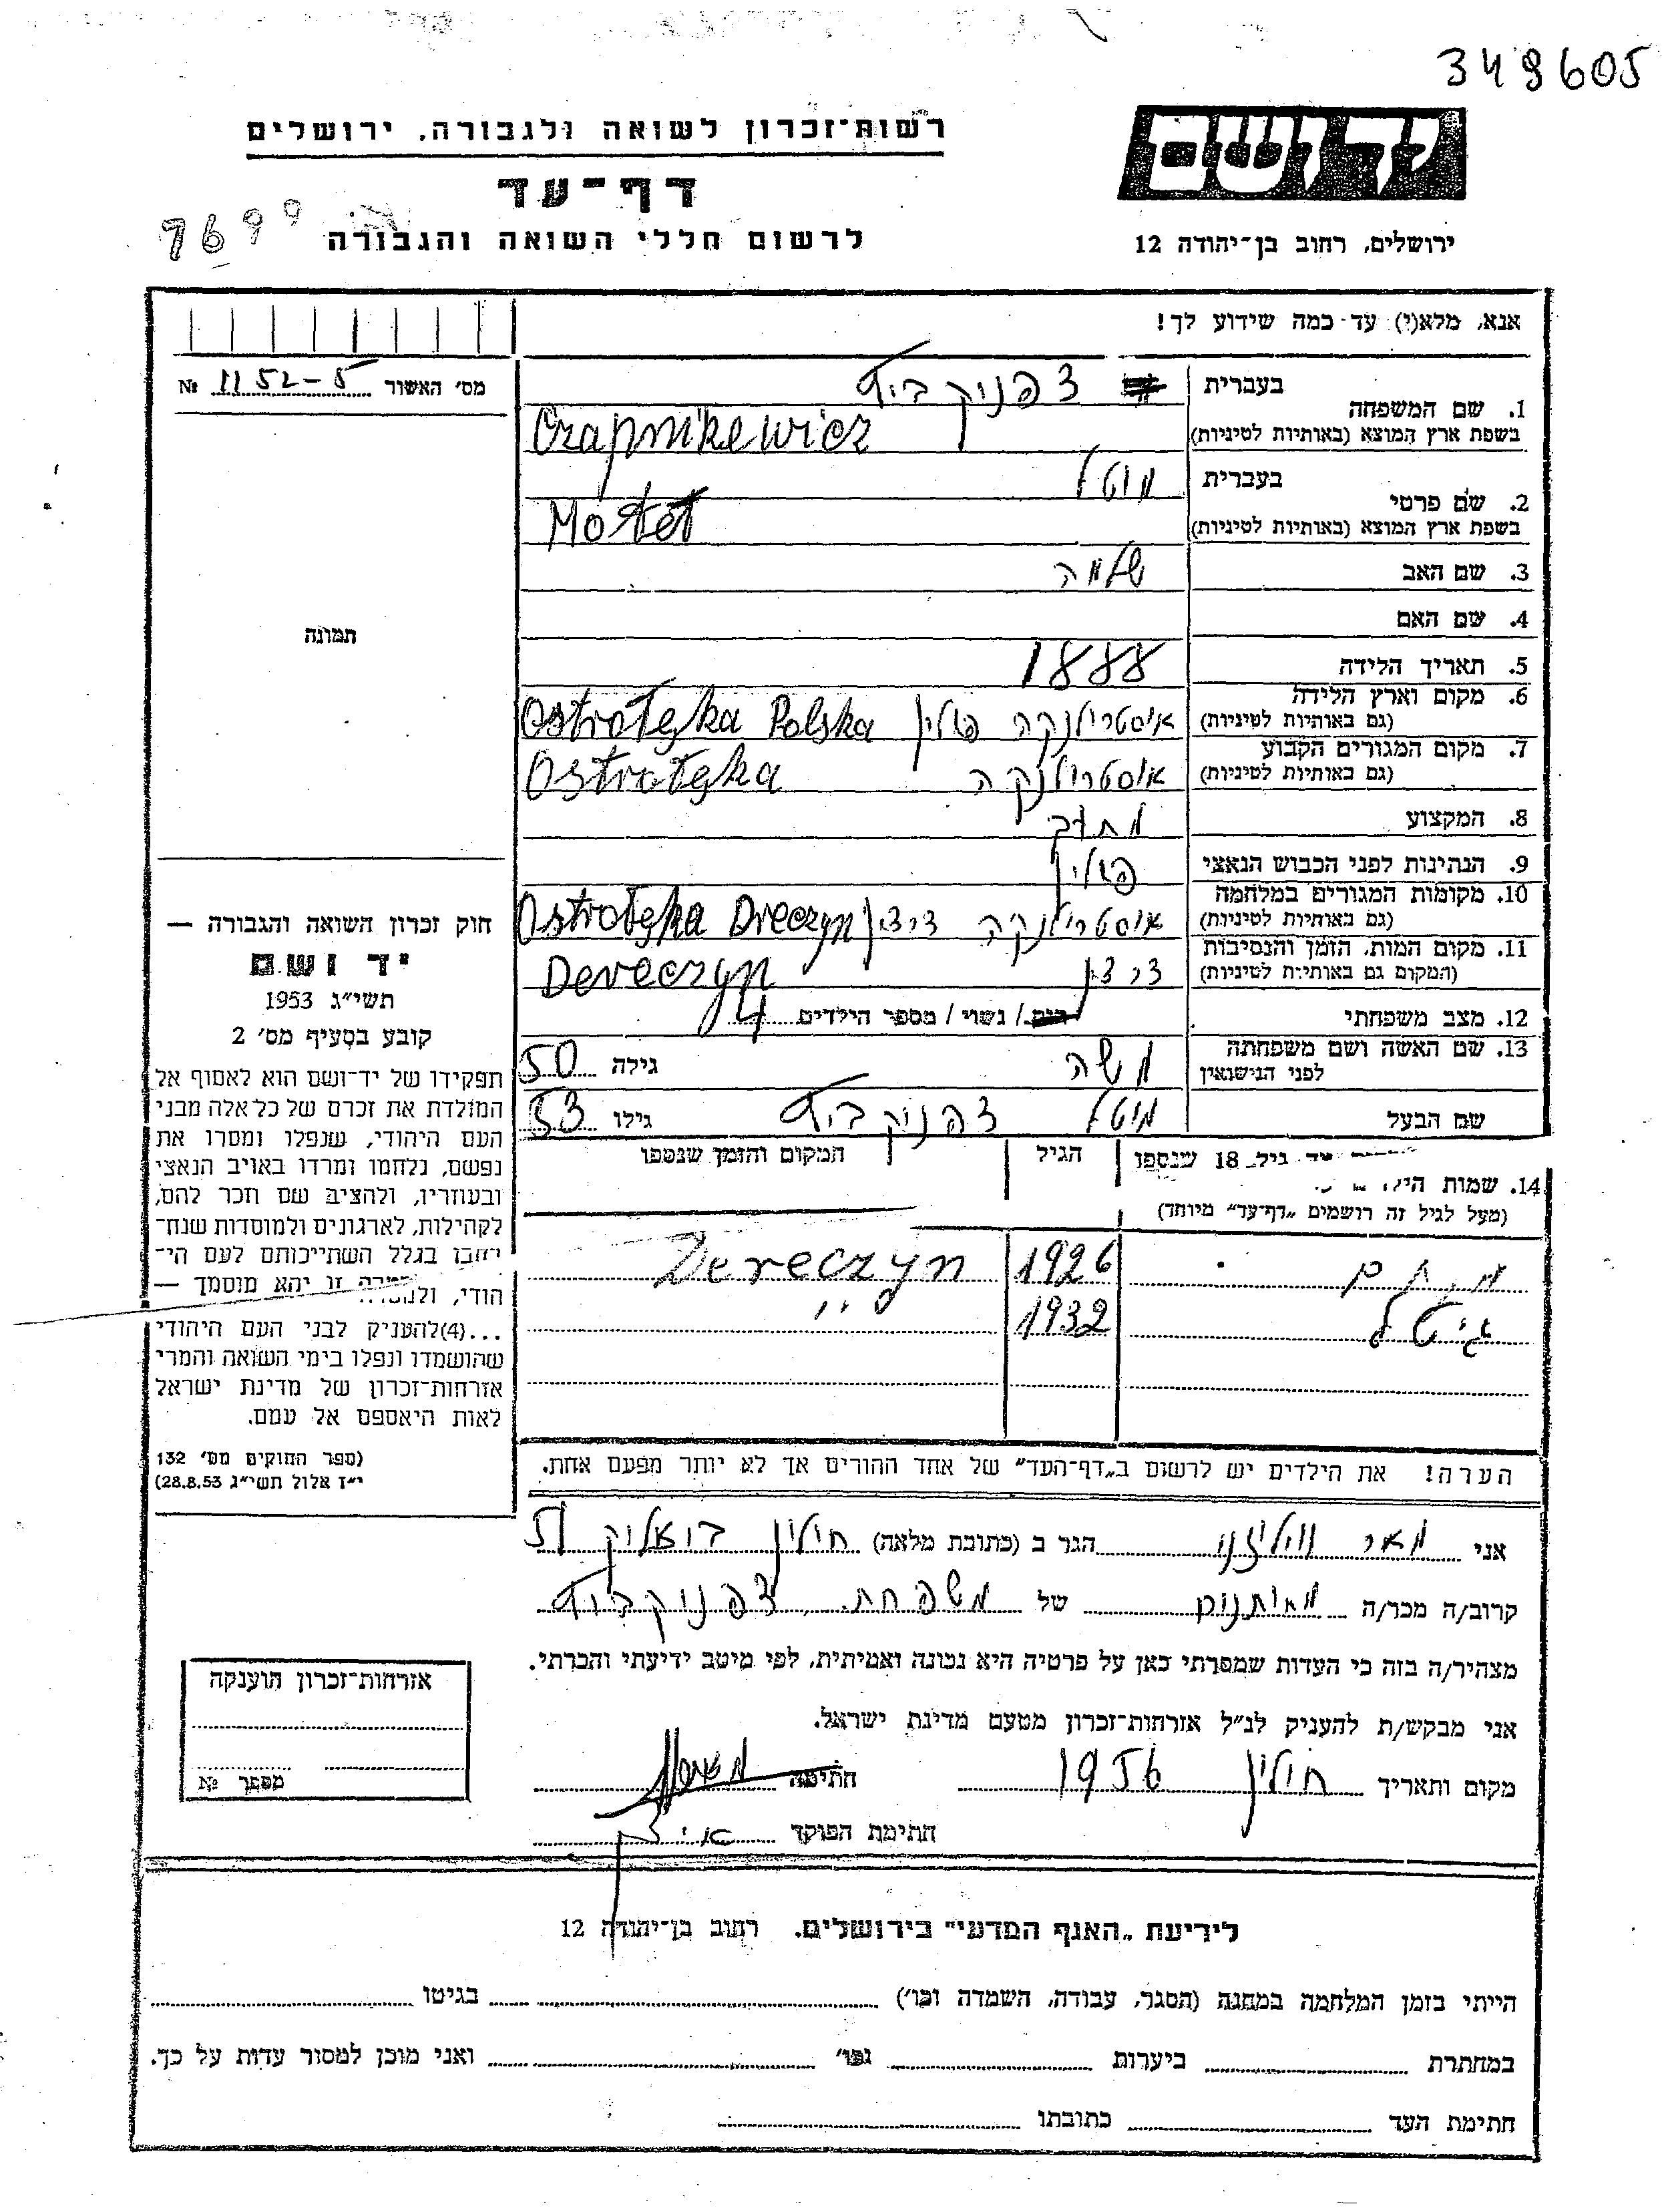 349605
רשות־זכרון לשואה ולגבורה, ירושלים
יד ושם
דף־עד
7699
לרשום חללי השואה והגבורה
ירושלים, רחוב בן־יהודה 12
אנא, מלא(י) עד כמה שידוע לך!
מס׳ האשור 1152-5 №
1. שם המשפחה
בעברית צפניקביץ
בשפת ארץ המוצא (באותיות לטיניות) Czapnikewicz
2. שם פרטי
בעברית מוטל
בשפת ארץ המוצא (באותיות לטיניות) Motel
3. שם האב שלמה
4. שם האם
תמונה
5. תאריך הלידה 1888
6. מקום וארץ הלידה
(גם באותיות לטיניות) אוסטרולנקה פולין Ostrołęka Polska
7. מקום המגורים הקבוע
(גם באותיות לטיניות) אוסטרולנקה Ostrołęka
8. המקצוע
9. הנתינות לפני הכבוש הנאצי פולין
10. מקומות המגורים במלחמה
(גם באותיות לטיניות) אוסטרולנקה דרצין Ostrołęka Dreczyn
11. מקום המות, הזמן והנסיבות
(המקום גם באותיות לטיניות) דרצין Dereczyn
12. מצב משפחתי / נשוי / מספר הילדים 4
13. שם האשה ושם משפחתה
לפני הנישואין משה גילה 50
שם הבעל מוטל צפניקביץ גילו 53
14. שמות
גיל 18 שנספו
הגיל
המקום והזמן שנספו
(מעל לגיל זה רושמים „דף־עד” מיוחד)
1926 Dereczyn
גיטל 1932 ״
חוק זכרון השואה והגבורה —
יד ושם
תשי״ג 1953
קובע בסעיף מס׳ 2
תפקידו של יד־ושם הוא לאסוף אל
המולדת את זכרם של כל אלה מבני
העם היהודי, שנפלו ומסרו את
נפשם, נלחמו ומרדו באויב הנאצי
ובעוזריו, ולהציב שם וזכר להם,
לקהילות, לארגונים ולמוסדות שנח־
רבו בגלל השתייכותם לעם הי־
הודי, ולמטרה זו יהא מוסמך —
...(4)להעניק לבני העם היהודי
שהושמדו ונפלו בימי השואה והמרי
אזרחות־זכרון של מדינת ישראל
לאות היאספם אל עמם.
(ספר החוקים מס׳ 132
י״ז אלול תשי״ג 28.8.53)
הערה! את הילדים יש לרשום ב„דף־העד” של אחד ההורים אך לא יותר מפעם אחת.
אני מאר הגר ב (כתובת מלאה) חולון 51
קרוב/ה מכר/ה של משפחת צפניקביץ
מצהיר/ה בזה כי העדות שמסרתי כאן על פרטיה היא נכונה ואמיתית, לפי מיטב ידיעתי והכרתי.
אני מבקש/ת להעניק לנ״ל אזרחות־זכרון מטעם מדינת ישראל.
מקום ותאריך חולון 1956 חתימה
חתימת הפוקד
אזרחות־זכרון הוענקה
מספר №
לידיעת „האגף המדעי” בירושלים. רחוב בן־יהודה 12
הייתי בזמן המלחמה במחנה (הסגר, עבודה, השמדה וכו׳) בגיטו
במחתרת ביערות וכו׳ ואני מוכן למסור עדות על כך.
חתימת העד כתובתו